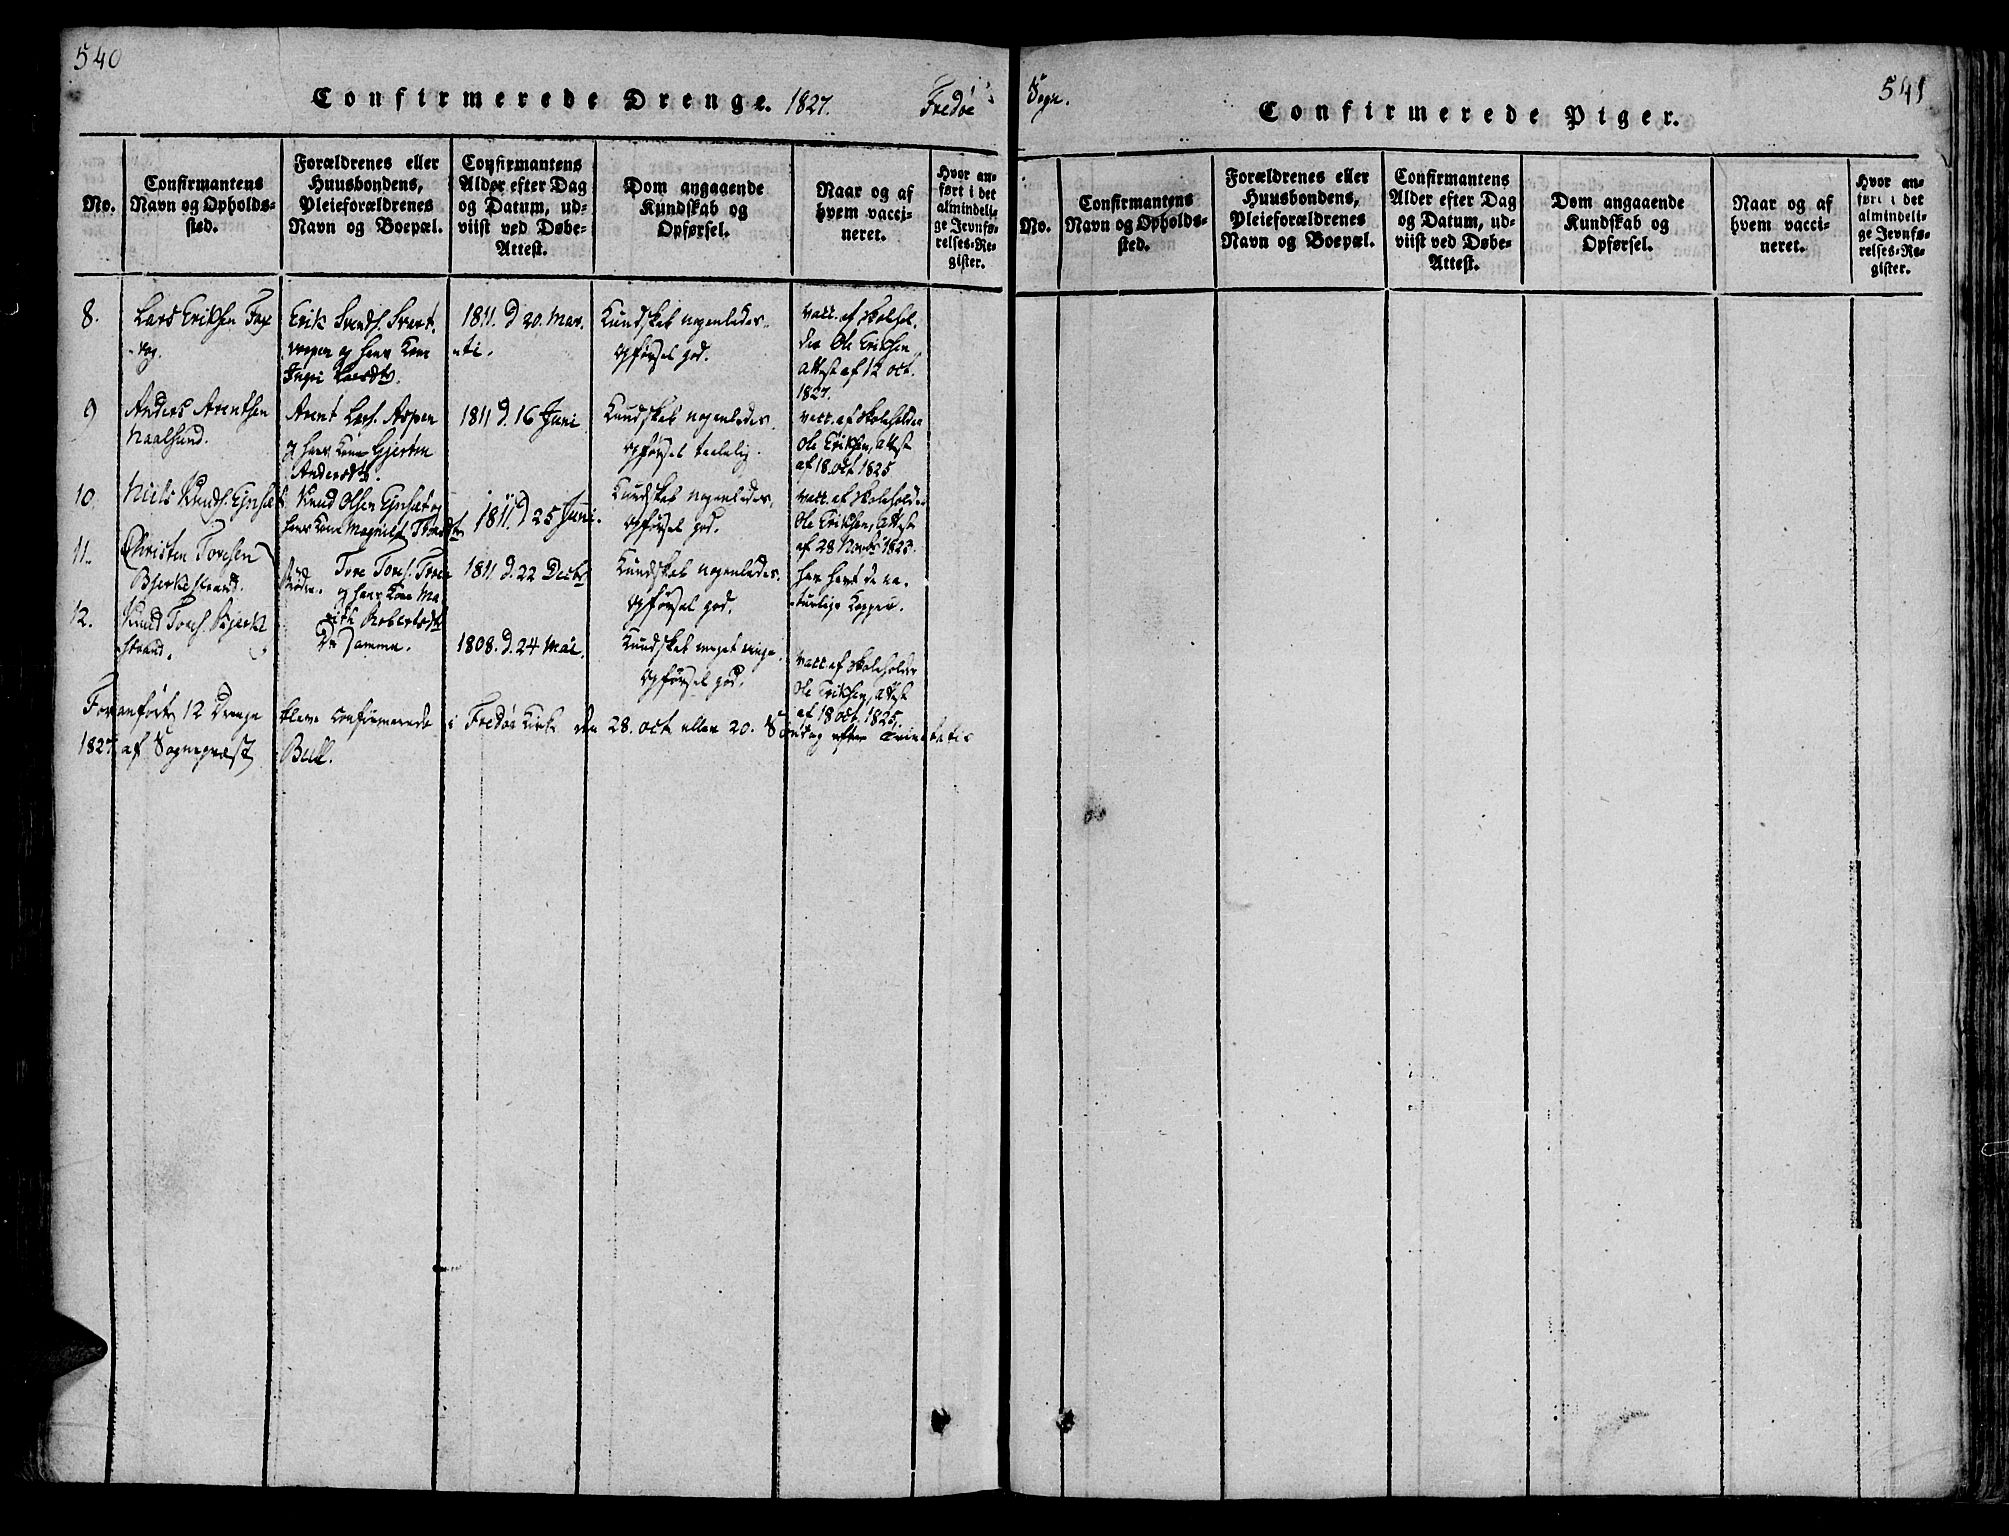 540
Confirmerede Drenge. 1827. Fredøe
No.
Confirmantens
Navn og Opholds-
sted.
Forældrenes eller
Huusbondens,
Pleieforældrenes
Navn og Boepæl.
Confirmantens
Alder efter Dag
og Datum, ud-
viist ved Døbe-
Attest.
Dom angaaende
Kundskab og
Opførsel.
Naar og af
hvem vacci-
neret.
Hvor an-
ført i det
almindeli-
ge Jevnfø-
relses-Re-
gister.
8.
Lars Eriksen
Erik Svends.
og hans Kone
Ingri Larsdtr.
1811. d 20. Mar-
ti.
Kundskab nogenledes.
Opførsel god.
vacc. af Skolehol-
der Ole Eriksen,
Attest af 12 oct.
1827.
9
Anders Arentsen
Naalsund.
Arent Lars. Aspen
og hans Kone Gjertru
Andersdtr.
1811 d. 16 Juni
Kundskab nogenledes.
Opførsel taalelig.
vacc. af Skoleholder
Ole Eriksen, Attest
af 18. oct. 1825
10.
Niels Knuds. Ejnset
Knud Olsen Ejnset og
hans Kone Magnild
1811. d 25 Juni.
Kundskab nogenledes,
Opførsel god.
vacc. af Skoleholder
Ole Eriksen, Attest
af 28 Novbr 1823.
11.
Christen Toresen
Bjerkestrand.
Tore Tores.
og hans Kone Ma-
rith Robertsdtr
1811. d. 22 Decbr
Kundskab nogenledes.
Opførsel god.
har havt de na-
turlige Kopper.
12.
Knud Tores. Bjerke
strand.
De samme.
1808. d. 24 Mai.
Kundskab meget ringe.
Opførsel god.
vacc. af Skoleholder
Ole Eriksen, Attest
af 18 oct. 1825.
Foranførte 12 Drenge bleve confirmerede i Fredøe Kirke den 28. oct. eller 20. Søndag efter Trinitatis
1827 af Sognepræst Bull.
Sogn.
541
Confirmerede Piger.
No.
Confirmantens
Navn og Opholds-
sted.
Forældrenes eller
Huusbondens,
Pleieforældrenes
Navn og Boepæl.
Confirmantens
Alder efter Dag
og Datum, ud-
viist ved Døbe-
Attest.
Dom angaaende
Kundskab og
Opførsel.
Naar og af
hvem vacci-
neret.
Hvor an-
ført i det
almindeli-
ge Jevnfø-
relses-Re-
gister.